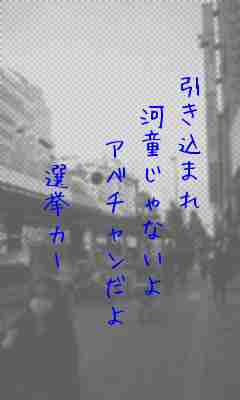 引き込まれ
河童じゃないよ
アベチャンだよ
選挙カー